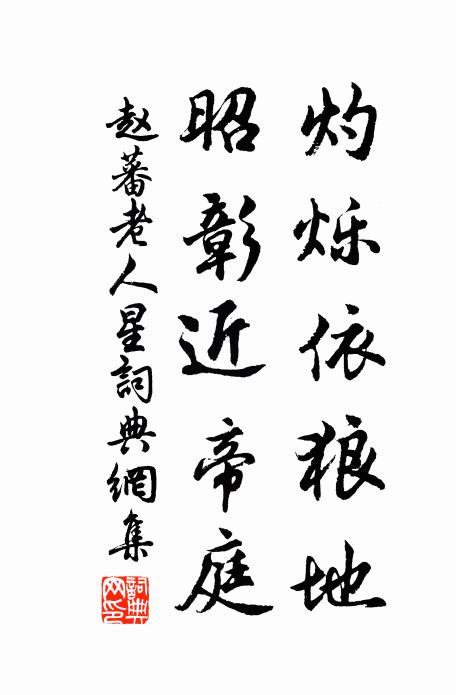 灼烁依狼地
昭彰近帝庭
赵蕃老人星詞典網集
詞典網印